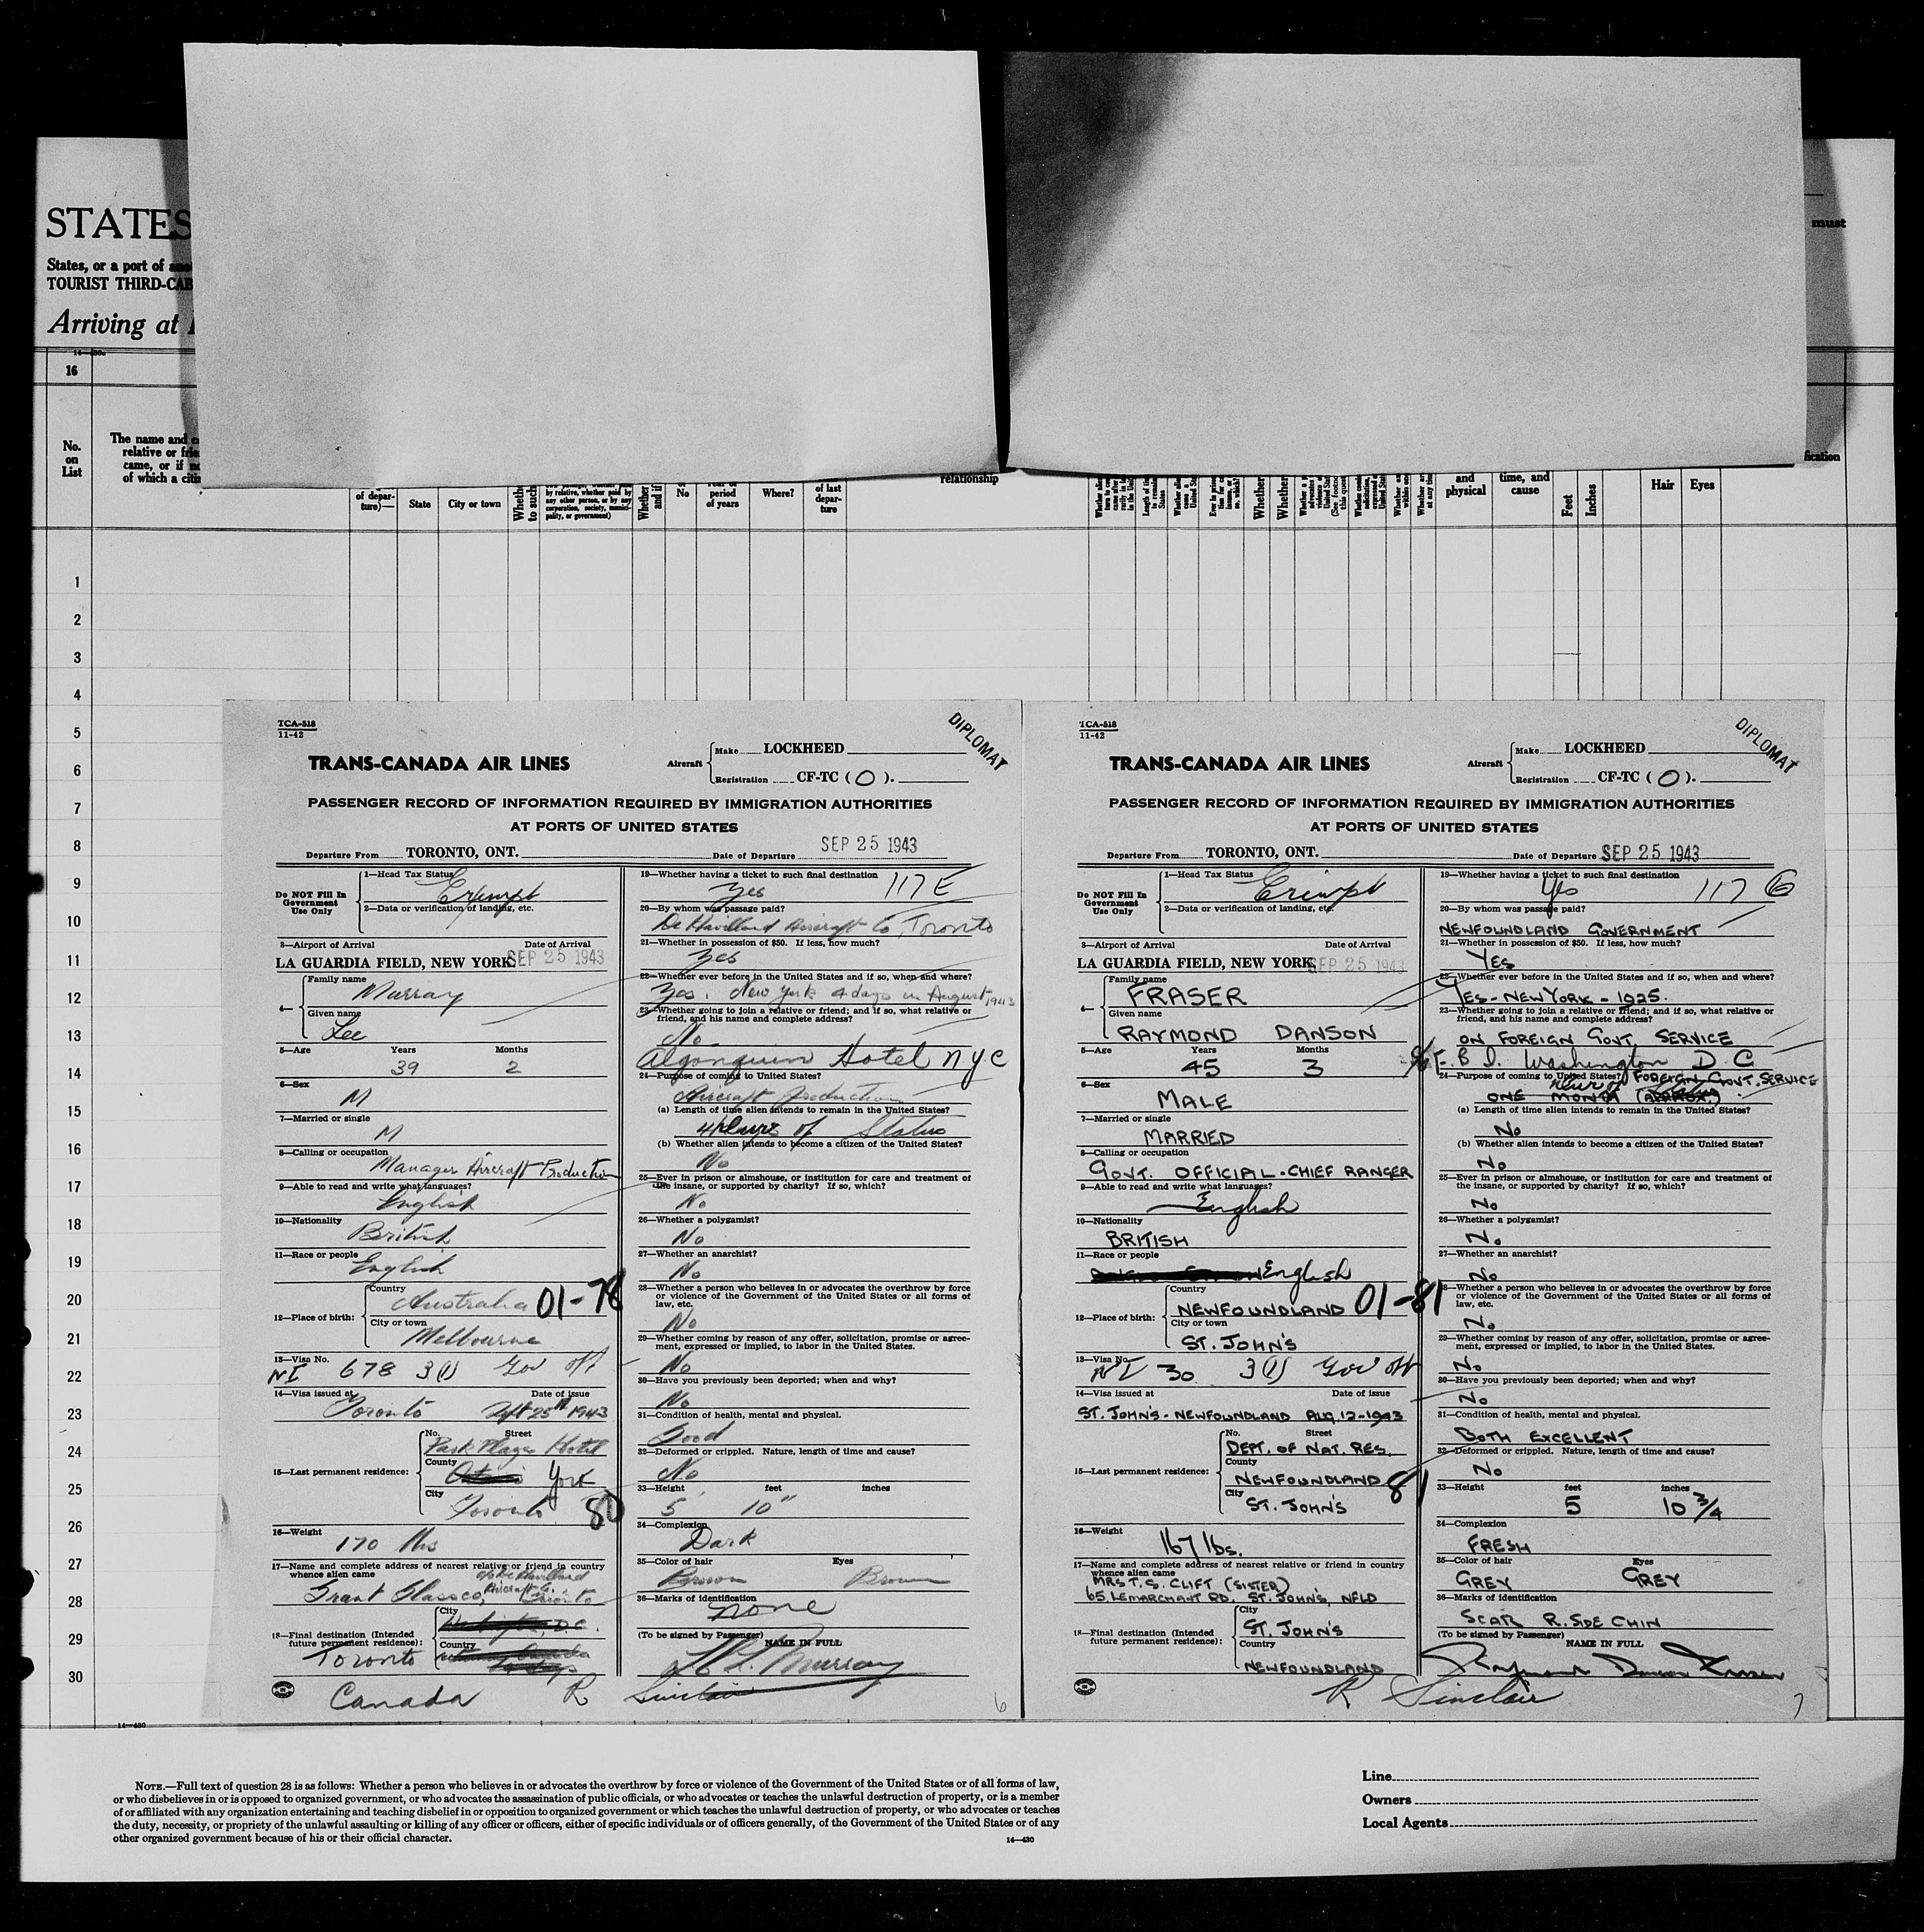 STATES
States, or a port of
TOURIST THIRD-CAB
Arriving at
must
16
No.
on
List
The name and
relative or frie
came, or if no
of which a citi
of depar-
ture)—
State
City or town
Whethe
to such
by relative, whether paid by
any other person, or by any
corporation, society, munici-
pality, or government)
No
period
of years
Where?
of last
depar-
ture
relationship
and
physical
time, and
cause
Feet
Inches
Hair
Eyes
1
2
3
4
5
6
7
8
9
10
11
12
13
14
15
16
17
18
19
20
21
22
23
24
25
26
27
28
29
30
TCA-518
11-42
DIPLOMAT
TRANS-CANADA AIR LINES
Aircraft
Make LOCKHEED
Registration CF-TC ( O ).
PASSENGER RECORD OF INFORMATION REQUIRED BY IMMIGRATION AUTHORITIES
AT PORTS OF UNITED STATES
Departure From TORONTO, ONT. Date of Departure SEP 25 1943
Do NOT Fill In
Government
Use Only
1—Head Tax Status
Exempt
2—Data or verification of landing, etc.
3—Airport of Arrival Date of Arrival
LA GUARDIA FIELD, NEW YORK SEP 25 1943
4— Family name
Murray
Given name
Lee
5—Age Years Months
39 2
6—Sex
M
7—Married or single
M
8—Calling or occupation
Manager Aircraft Production
9—Able to read and write what languages?
English
10—Nationality
British
11—Race or people
English
12—Place of birth: Country
Australia 01-78
City or town
Melbourne
13—Visa No.
NI 678 3(1) Gov off
14—Visa issued at Date of issue
Toronto Sept 25th 1943
15—Last permanent residence: No. Street
Park Plaza Hotel
County
Ontario York
City
Toronto 80
16—Weight
170 lbs
17—Name and complete address of nearest relative or friend in country
whence alien came
c/o De Havilland
Grant Glassco, Aircraft Co. Toronto
18—Final destination (Intended
future permanent residence): City
D.C.
Country
Toronto
Canada
19—Whether having a ticket to such final destination
Yes 117 E
20—By whom was passage paid?
De Havilland Aircraft Co, Toronto
21—Whether in possession of $50. If less, how much?
Yes
22—Whether ever before in the United States and if so, when and where?
Yes. New York 4 days in August, 1943
23—Whether going to join a relative or friend; and if so, what relative or
friend, and his name and complete address?
No.
Algonquin Hotel NYC
24—Purpose of coming to United States?
Aircraft Production
(a) Length of time alien intends to remain in the United States?
of Status
(b) Whether alien intends to become a citizen of the United States?
No
25—Ever in prison or almshouse, or institution for care and treatment of
the insane, or supported by charity? If so, which?
No
26—Whether a polygamist?
No
27—Whether an anarchist?
No
28—Whether a person who believes in or advocates the overthrow by force
or violence of the Government of the United States or all forms of
law, etc.
No
29—Whether coming by reason of any offer, solicitation, promise or agree-
ment, expressed or implied, to labor in the United States.
No
30—Have you previously been deported; when and why?
No
31—Condition of health, mental and physical.
Good
32—Deformed or crippled. Nature, length of time and cause?
No
33—Height feet inches
5' 10"
34—Complexion
Dark
35—Color of hair Eyes
Brown Brown
36—Marks of identification
none
(To be signed by Passenger) NAME IN FULL
Murray
R Sinclair
6
TCA-518
11-42
DIPLOMAT
TRANS-CANADA AIR LINES
Aircraft
Make LOCKHEED
Registration CF-TC ( O ).
PASSENGER RECORD OF INFORMATION REQUIRED BY IMMIGRATION AUTHORITIES
AT PORTS OF UNITED STATES
Departure From TORONTO, ONT. Date of Departure SEP 25 1943
Do NOT Fill In
Government
Use Only
1—Head Tax Status
Exempt
2—Data or verification of landing, etc.
3—Airport of Arrival Date of Arrival
LA GUARDIA FIELD, NEW YORK SEP 25 1943
4— Family name
FRASER
Given name
RAYMOND DANSON
5—Age Years Months
45 3
6—Sex
MALE
7—Married or single
MARRIED
8—Calling or occupation
GOVT. OFFICIAL - CHIEF RANGER
9—Able to read and write what languages?
English
10—Nationality
BRITISH
11—Race or people
English
12—Place of birth: Country
NEWFOUNDLAND 01-81
City or town
ST. JOHN'S
13—Visa No.
NI 30 3(1) Gov off
14—Visa issued at Date of issue
ST. JOHN'S - NEWFOUNDLAND AUG. 12-1943
15—Last permanent residence: No. Street
DEPT. OF NAT. RES.
County
NEWFOUNDLAND 81
City
ST. JOHN'S
16—Weight
167 lbs.
17—Name and complete address of nearest relative or friend in country
whence alien came
MRS T. S. CLIFT (SISTER)
65 LEMARCHANT RD. ST. JOHN'S, NFLD
18—Final destination (Intended
future permanent residence): City
ST. JOHN'S
Country
NEWFOUNDLAND
19—Whether having a ticket to such final destination
Yes 117 G
20—By whom was passage paid?
NEWFOUNDLAND GOVERNMENT
21—Whether in possession of $50. If less, how much?
YES
22—Whether ever before in the United States and if so, when and where?
YES - NEW YORK - 1925.
23—Whether going to join a relative or friend; and if so, what relative or
friend, and his name and complete address?
ON FOREIGN GOVT. SERVICE
c/o F.B.I. Washington D C
24—Purpose of coming to United States? FOREIGN GOVT. SERVICE
ONE MONTH (APPROX.)
(a) Length of time alien intends to remain in the United States?
No
(b) Whether alien intends to become a citizen of the United States?
No
25—Ever in prison or almshouse, or institution for care and treatment of
the insane, or supported by charity? If so, which?
No
26—Whether a polygamist?
No
27—Whether an anarchist?
No
28—Whether a person who believes in or advocates the overthrow by force
or violence of the Government of the United States or all forms of
law, etc.
No
29—Whether coming by reason of any offer, solicitation, promise or agree-
ment, expressed or implied, to labor in the United States.
No
30—Have you previously been deported; when and why?
No
31—Condition of health, mental and physical.
BOTH EXCELLENT
32—Deformed or crippled. Nature, length of time and cause?
No
33—Height feet inches
5 10 3/4
34—Complexion
FRESH
35—Color of hair Eyes
GREY GREY
36—Marks of identification
SCAR R. SIDE CHIN
(To be signed by Passenger) NAME IN FULL
Raymond Danson Fraser
R Sinclair
7
14—430
NOTE.—Full text of question 28 is as follows: Whether a person who believes in or advocates the overthrow by force or violence of the Government of the United States or of all forms of law,
or who disbelieves in or is opposed to organized government, or who advocates the assassination of public officials, or who advocates or teaches the unlawful destruction of property, or is a member
of or affiliated with any organization entertaining and teaching disbelief in or opposition to organized government or which teaches the unlawful destruction of property, or who advocates or teaches
the duty, necessity, or propriety of the unlawful assaulting or killing of any officer or officers, either of specific individuals or of officers generally, of the Government of the United States or of any
other organized government because of his or their official character.
14—430
Line
Owners
Local Agents